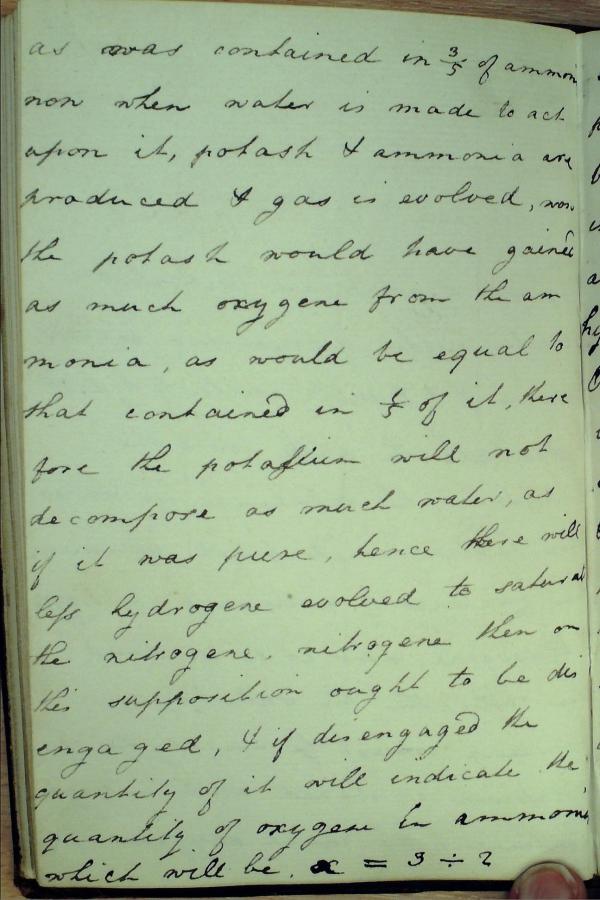 as was contained in 3/5 of ammon
non when water is made to act
upon it, potash & ammonia are
produced & gas is evolved, now
the potash would have gained
as much oxygene from the am
monia, as would be equal to
that contained in 1/5 of it, there
fore the potassium will not
decompose as much water, as
if it was pure, hence there will
less hydrogene evolved to saturat
the nitrogene. nitrogene then on
this supposition ought to be dis
engaged, & if disengaged the
quantity of it will indicate the
quantity of oxygene in ammonia
which will be. x = 3 ÷ 2